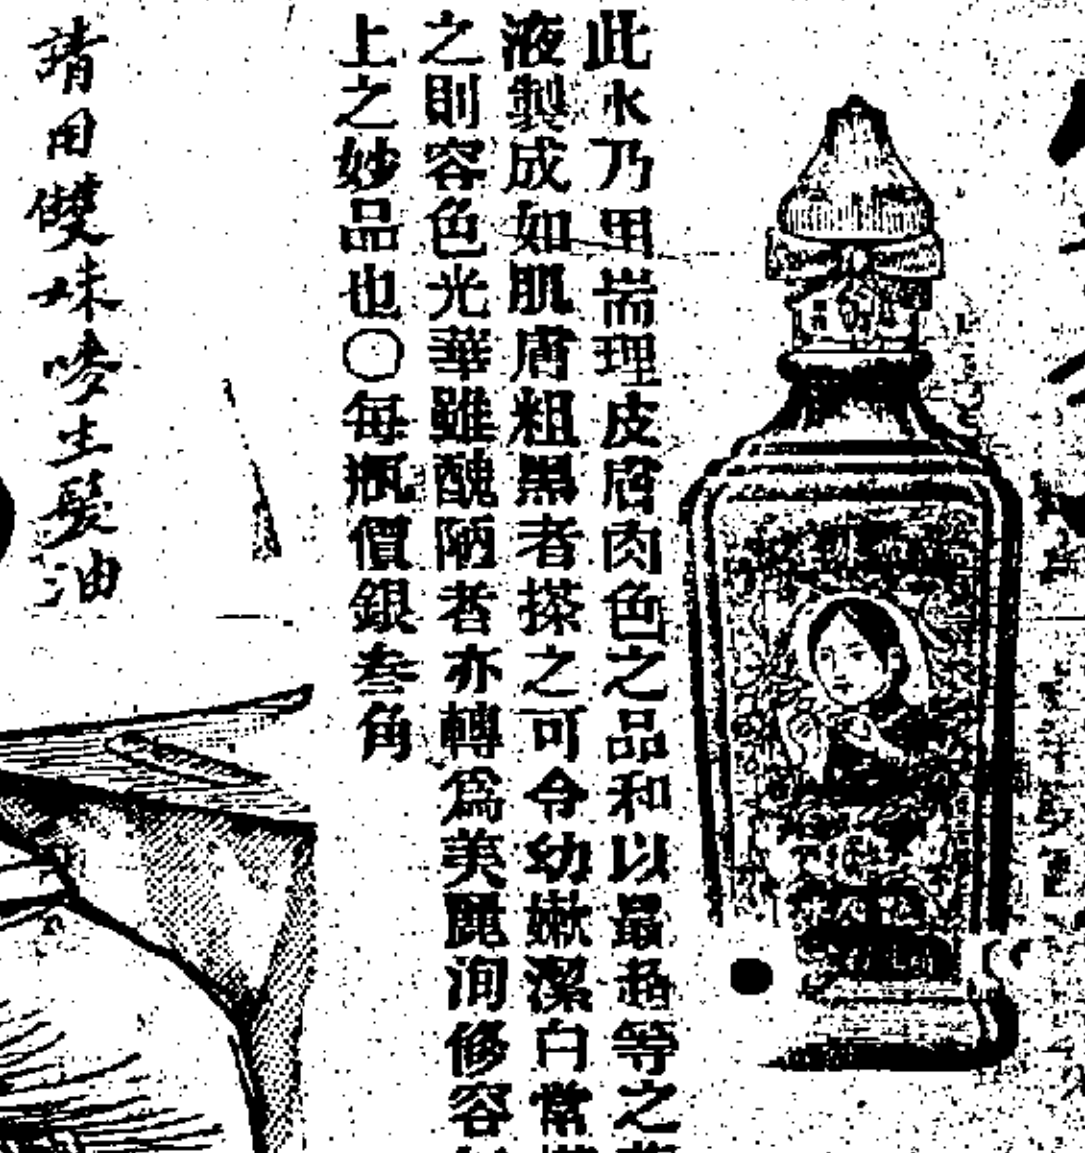 此水乃用耑理皮膚肉色之品和以最超等之
液製成如肌膚粗黑者搽之可令幼嫩潔白常
之則容色光華雖醜陋者亦轉爲美麗洵修容
上之妙品也〇每瓶價銀叁角
請用雙妹嘜生髮油